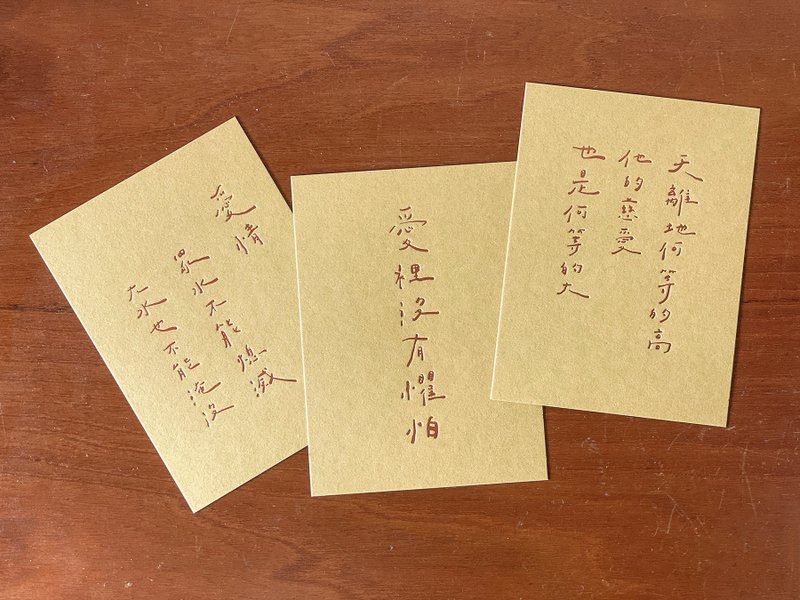 愛情
眾水不能熄滅
大水也不能淹沒
愛裡沒有懼怕
天離地何等的高
他的慈愛
也是何等的大